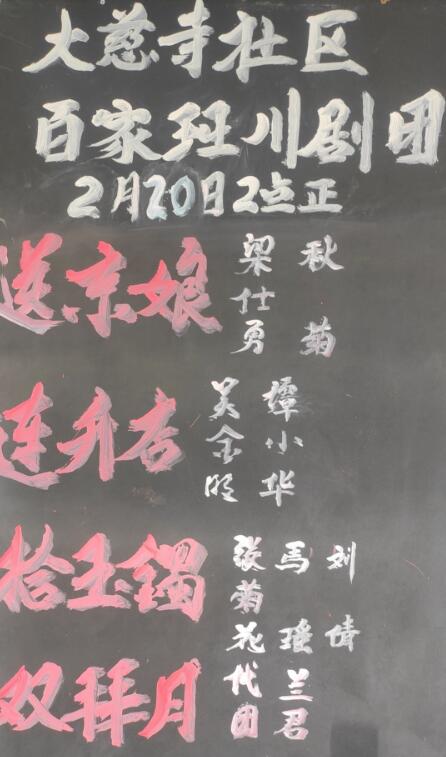 大慈寺社区
百家班川剧团
2月20日2点正
送京娘
梁仕勇
秋菊
连升店
吴金明
谭小华
拾玉镯
张菊花代团
马瑶兰君
刘倩
双拜月